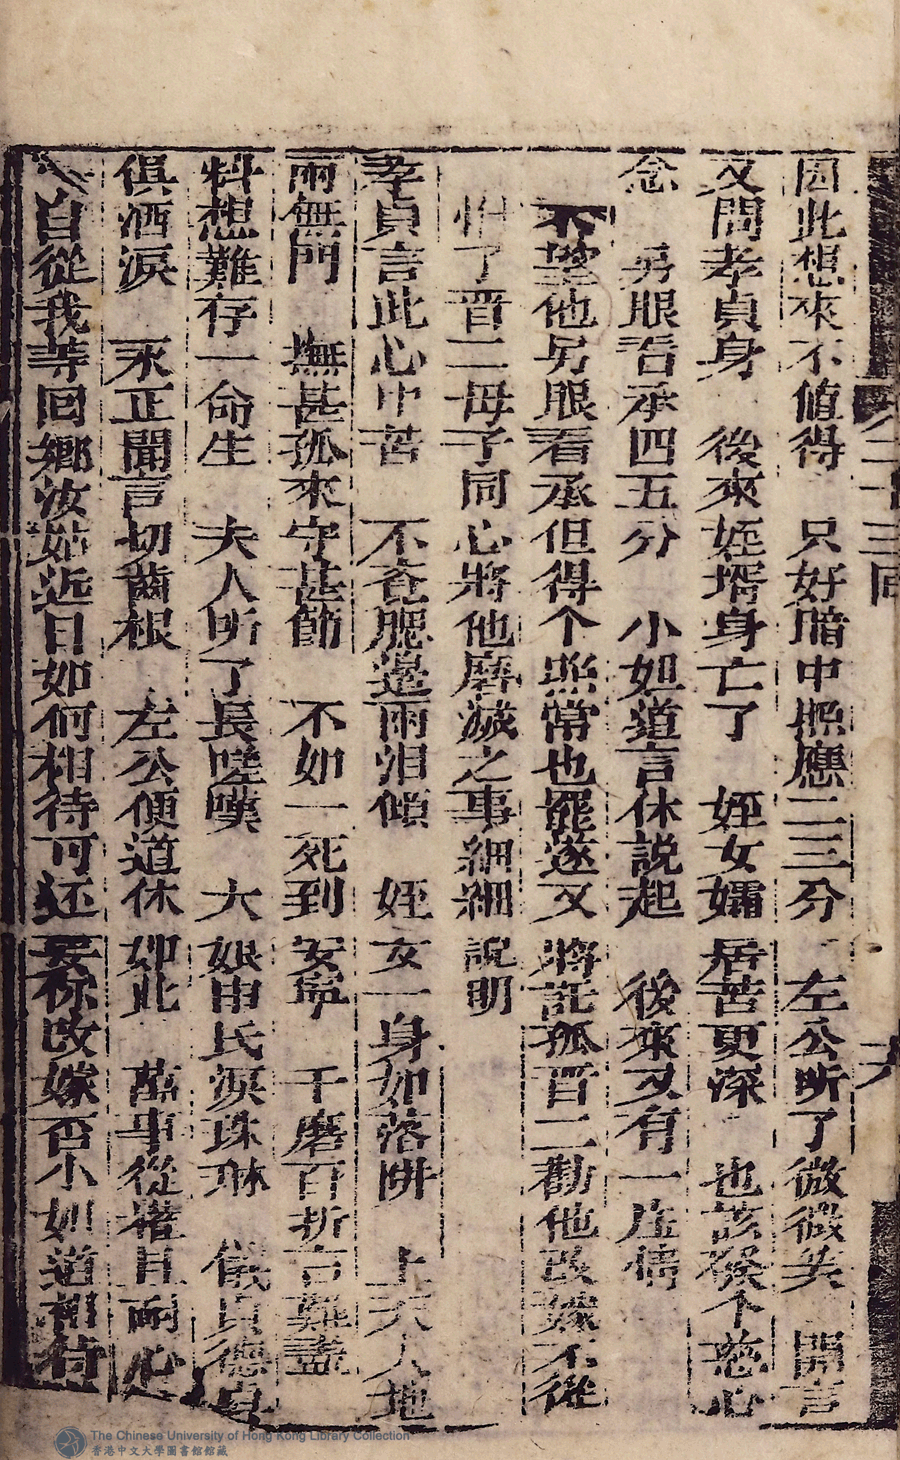 因此想來不值得　只好暗中照應二三分　左公听了微微笑　開言
又問孝貞身　後來姪壻身亡了　姪女孀居苦更深　也該發个慈心
念　另眼看承四五分　小如道言休説起　後來又有一庄情
不望他另眼看承但得个照常也罷遂又將託孤晋二勸他改嫁不從
惱了晋二母子同心將他磨滅之事細細說明
孝貞言此心中苦　不竟腮邉兩泪傾　姪女一身如落阱　上天入地
兩無門　撫甚孤來守甚節　不如一死到安寧　千磨百折言難盡
料想難存一命生　夫人听了長嗟嘆　大娘申氏淚珠琳　儀貞德貞
俱洒淚　永正聞言切齒根　左公便道休如此　萬事從權且耐心
自從我等回鄉汝姑近日如何相待可还要你改嫁否小如道相待
二十三囘
六
The Chinese University of Hong Kong Library Collection
香港中文大學圖書館館藏